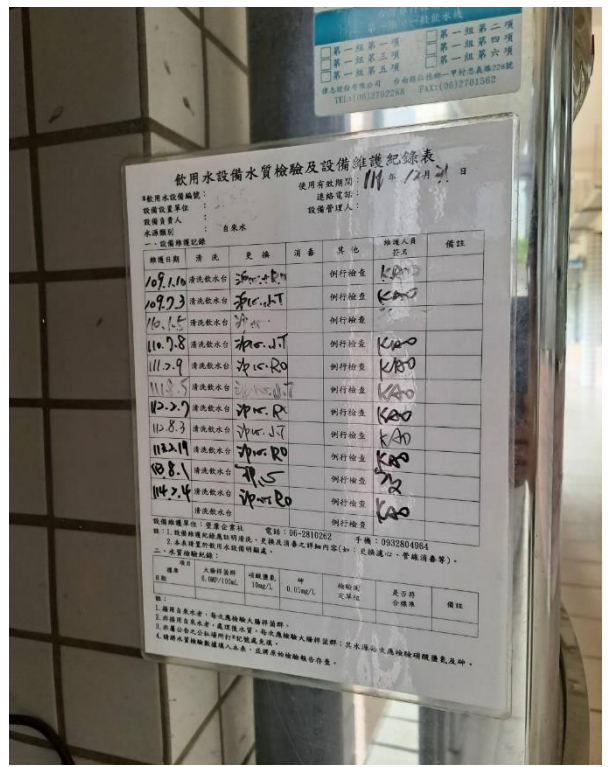 第一組第一項 第一組第二項
第一組第三項 第一組第四項
第一組第五項 第一組第六項
TEL:(06)2792288 FAX:(06)2701562
飲用水設備水質檢驗及設備維護紀錄表
飲用水設備編號：
使用有效期間： 年 12月31日
設備設置單位：
連絡電話：
設備負責人：
設備管理人：
水源類別：自來水
一、設備維護記錄
維護日期 清洗 更換 消毒 其他 維護人員簽名 備註
109.1.10 清洗飲水台 例行檢查 KAO
109.7.3 清洗飲水台 例行檢查 KAO
110.1.5 清洗飲水台 例行檢查
110.7.8 清洗飲水台 例行檢查 KAO
111.2.9 清洗飲水台 例行檢查 KAO
111.8.5 清洗飲水台 例行檢查 KAO
112.2.7 清洗飲水台 例行檢查 KAO
112.8.3 清洗飲水台 例行檢查 KAO
清洗飲水台 例行檢查 KAO
清洗飲水台 例行檢查
114.2.4 清洗飲水台 例行檢查 KAO
清洗飲水台 例行檢查
設備維護單位：豐廉企業社 電話：06-2810262 手機：0932804964
註：1.設備維護紀錄應註明清洗、更換及消毒之詳細內容(如：更換濾心、管線消毒等)。
2.本表請置於飲用水設備明顯處。
二、水質檢驗紀錄：
項目 標準 日期 大腸桿菌群 6.0MPN/100mL 硝酸鹽氮 10mg/L 砷 0.01mg/L 檢驗測定單位 是否符合標準 備註
註：
1.接用自來水者，每次應檢驗大腸桿菌群。
2.非接用自來水者，處理後水質，每次應檢驗大腸桿菌群；其水源每次應檢驗硝酸鹽氮及砷。
3.非屬公告之公私場所打*記號處免填。
4.請將水質檢驗數據填入本表，並將原始檢驗報告存查。